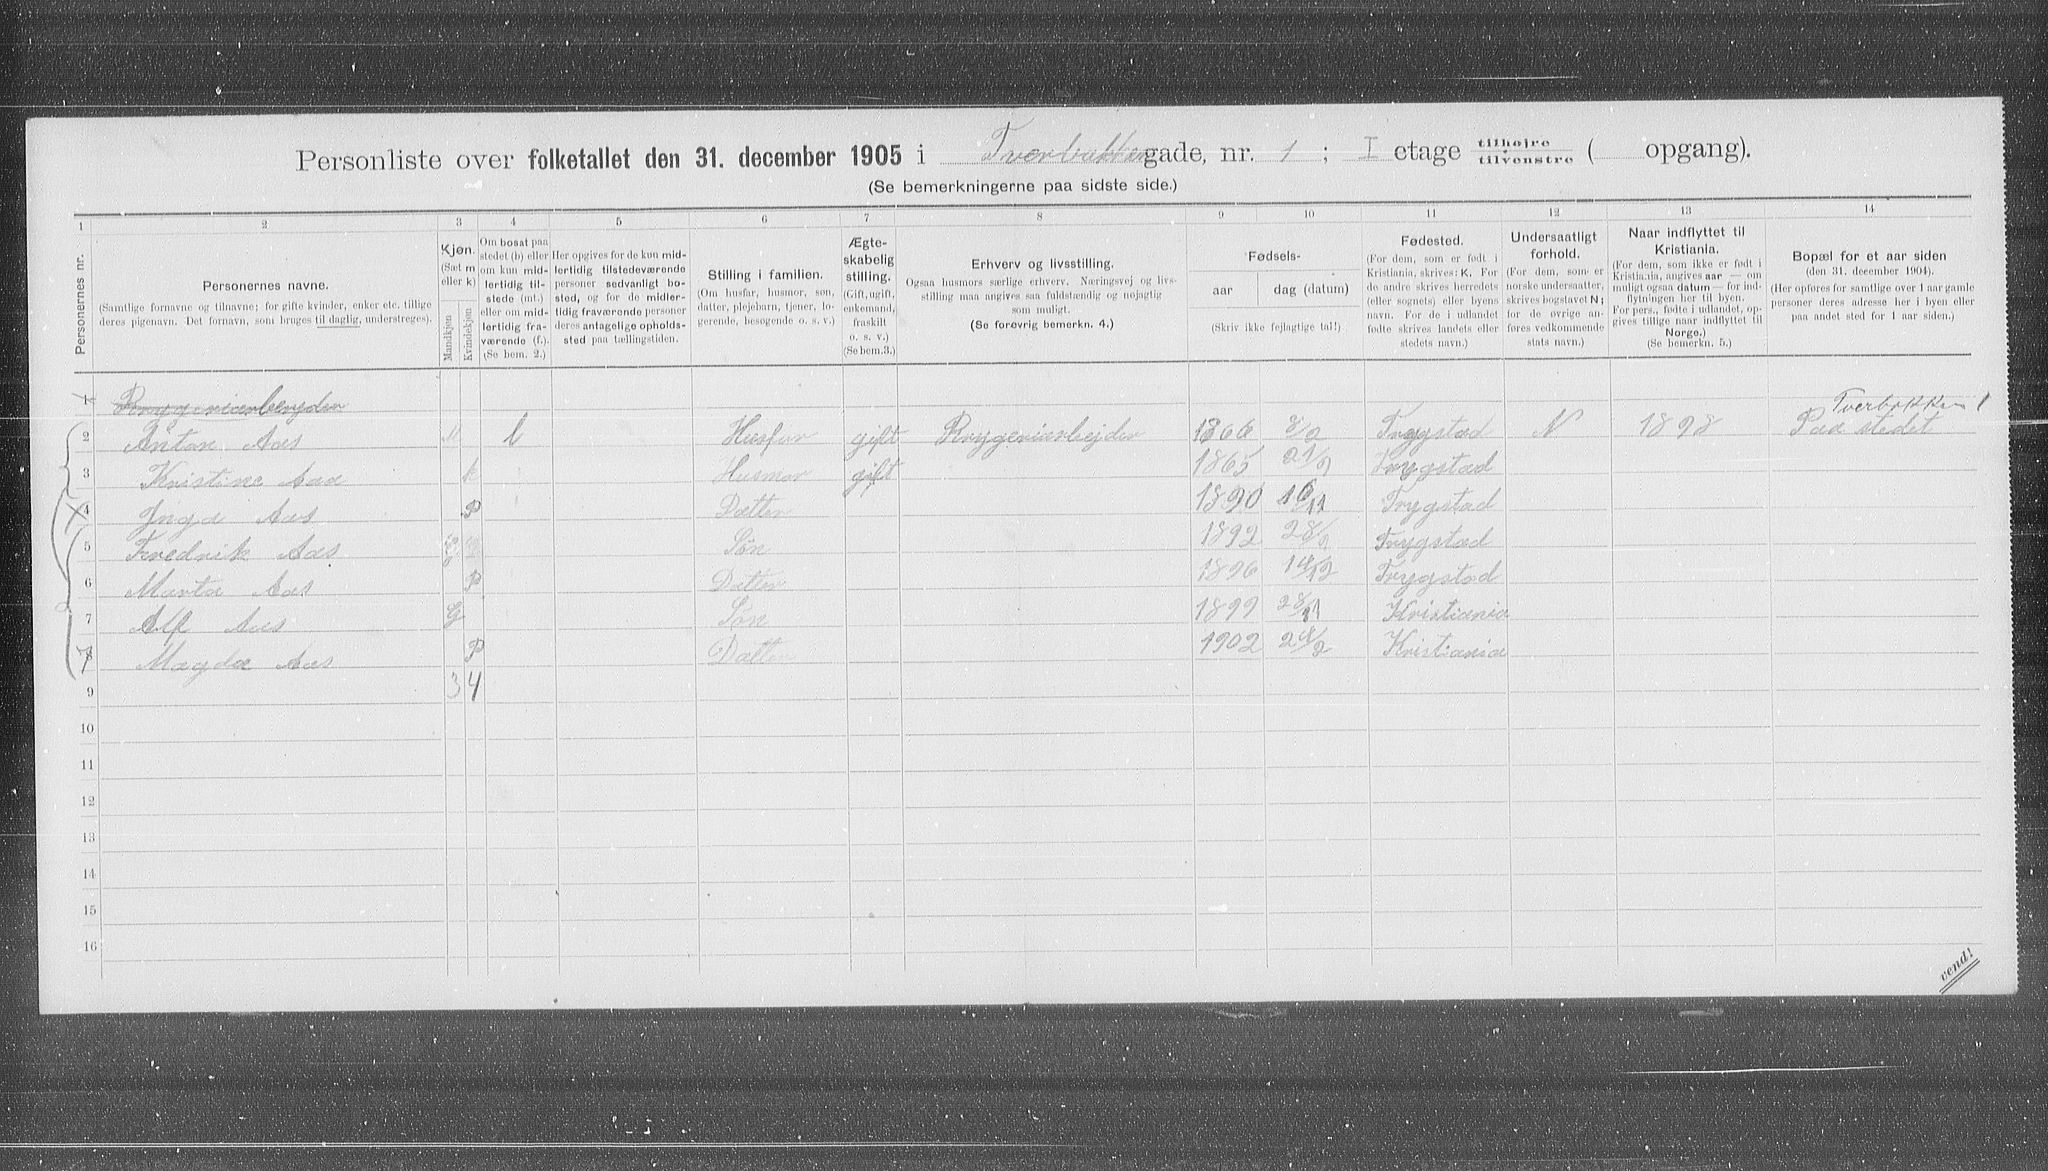 Personliste over folketallet den 31. december 1905 i Tværbakken gade, nr. 1 ; I etage tilhøjre tilvenstre ( opgang).
(Se bemerkningerne paa sidste side.)
1 2 3 4 5 6 7 8 9 10 11 12 13 14
Personernes nr.
Personernes navne.
(Samtlige fornavne og tilnavne; for gifte kvinder, enker etc. tillige
deres pigenavn. Det fornavn, som bruges til daglig, understreges).
Kjøn.
(Sæt m
eller k)
Mandkjøn
Kvindekjøn
Om bosat paa
stedet (b) eller
om kun mid-
lertidig til-
stede (mt.)
eller om mid-
lertidig fra-
værende (f.).
(Se bem. 2.)
Her opgives for de kun mid-
lertidig tilstedeværende
personer sedvanligt bo-
sted, og for de midler-
tidig fraværende personer
deres antagelige opholds-
sted paa tællingstiden.
Stilling i familien.
(Om husfar, husmor, søn,
datter, plejebarn, tjener, lo-
gerende, besøgende o. s. v.)
Ægte-
skabelig
stilling.
(Gift, ugift,
enkemand,
fraskilt
o. s. v.)
(Se bem. 3.)
Erhverv og livsstilling.
Ogsaa husmors særlige erhverv. Næringsvej og livs-
stilling maa angives saa fuldstændig og nøjagtig
som muligt.
(Se forøvrig bemerkn. 4.)
Fødsels-
aar
dag (datum)
(Skriv ikke fejlagtige tal!)
Fødested.
(For dem, som er født i
Kristiania, skrives: K. For
de andre skrives herredets
(eller sognets) eller byens
navn. For de i udlandet
fødte skrives landets eller
stedets navn.)
Undersaatligt
forhold.
(For dem, som er
norske undersaatter,
skrives bogstavet N;
for de øvrige an-
føres vedkommende
stats navn.)
Naar indflyttet til
Kristiania.
(For dem, som ikke er født i
Kristiania, angives aar — om
muligt ogsaa datum — for ind-
flytningen her til byen.
For pers., fødte i udlandet, op-
gives tillige naar indflyttet til
Norge.)
(Se bemerkn. 5.)
Bopæl for et aar siden
(den 31. december 1904).
(Her opføres for samtlige over 1 aar gamle
personer deres adresse her i byen eller
paa andet sted for 1 aar siden.)
1 Bryggeriarbeyder
2 Anton Aas M b Husfar gift Bryggeriarbejder 1866 Trygstad N 1898 Tverbakken 1 Paa stedet
3 Kristine Aas k Husmor gift 1865 21/9 Trygstad
4 Inga Aas P Datter 1890 16/11 Trygstad
5 Fredrik Aas Søn 1892 28/9 Trygstad
6 Marta Aas P Datter 1896 14/12 Trygstad
7 Alf Aas G Søn 1899 28/11 Kristiania
8 Magda Aas P Datter 1902 24/2 Kristiania
9 3 4
10
11
12
13
14
15
16
vend!